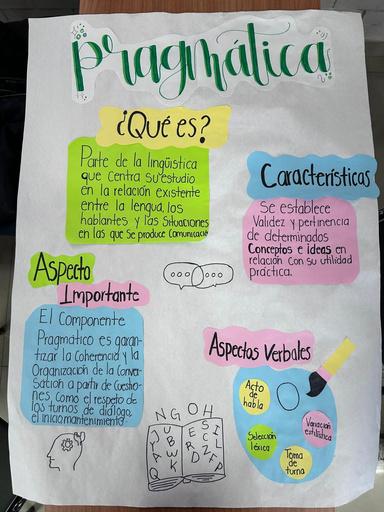 pragmática
¿Qué es?
Parte de la lingüística
que centra su estudio
en la relación existente
entre la lengua, los
hablantes y las situaciones
en las que se produce comunicació
Características
Se establece
Validez y pertinencia
de determinados
Conceptos e ideas en
relación con su utilidad
práctica.
Aspecto
Importante
El Componente
Pragmático es garan-
tizar la Coherencia y la
Organización de la Conver-
sación a partir de Cuestio-
nes, como el respeto de
los turnos de diálogo,
el inicio mantenimiento?
Aspectos Verbales
Acto
de
habla
Variación
estilística
Selección
léxica
Toma
de
turno
N G O H